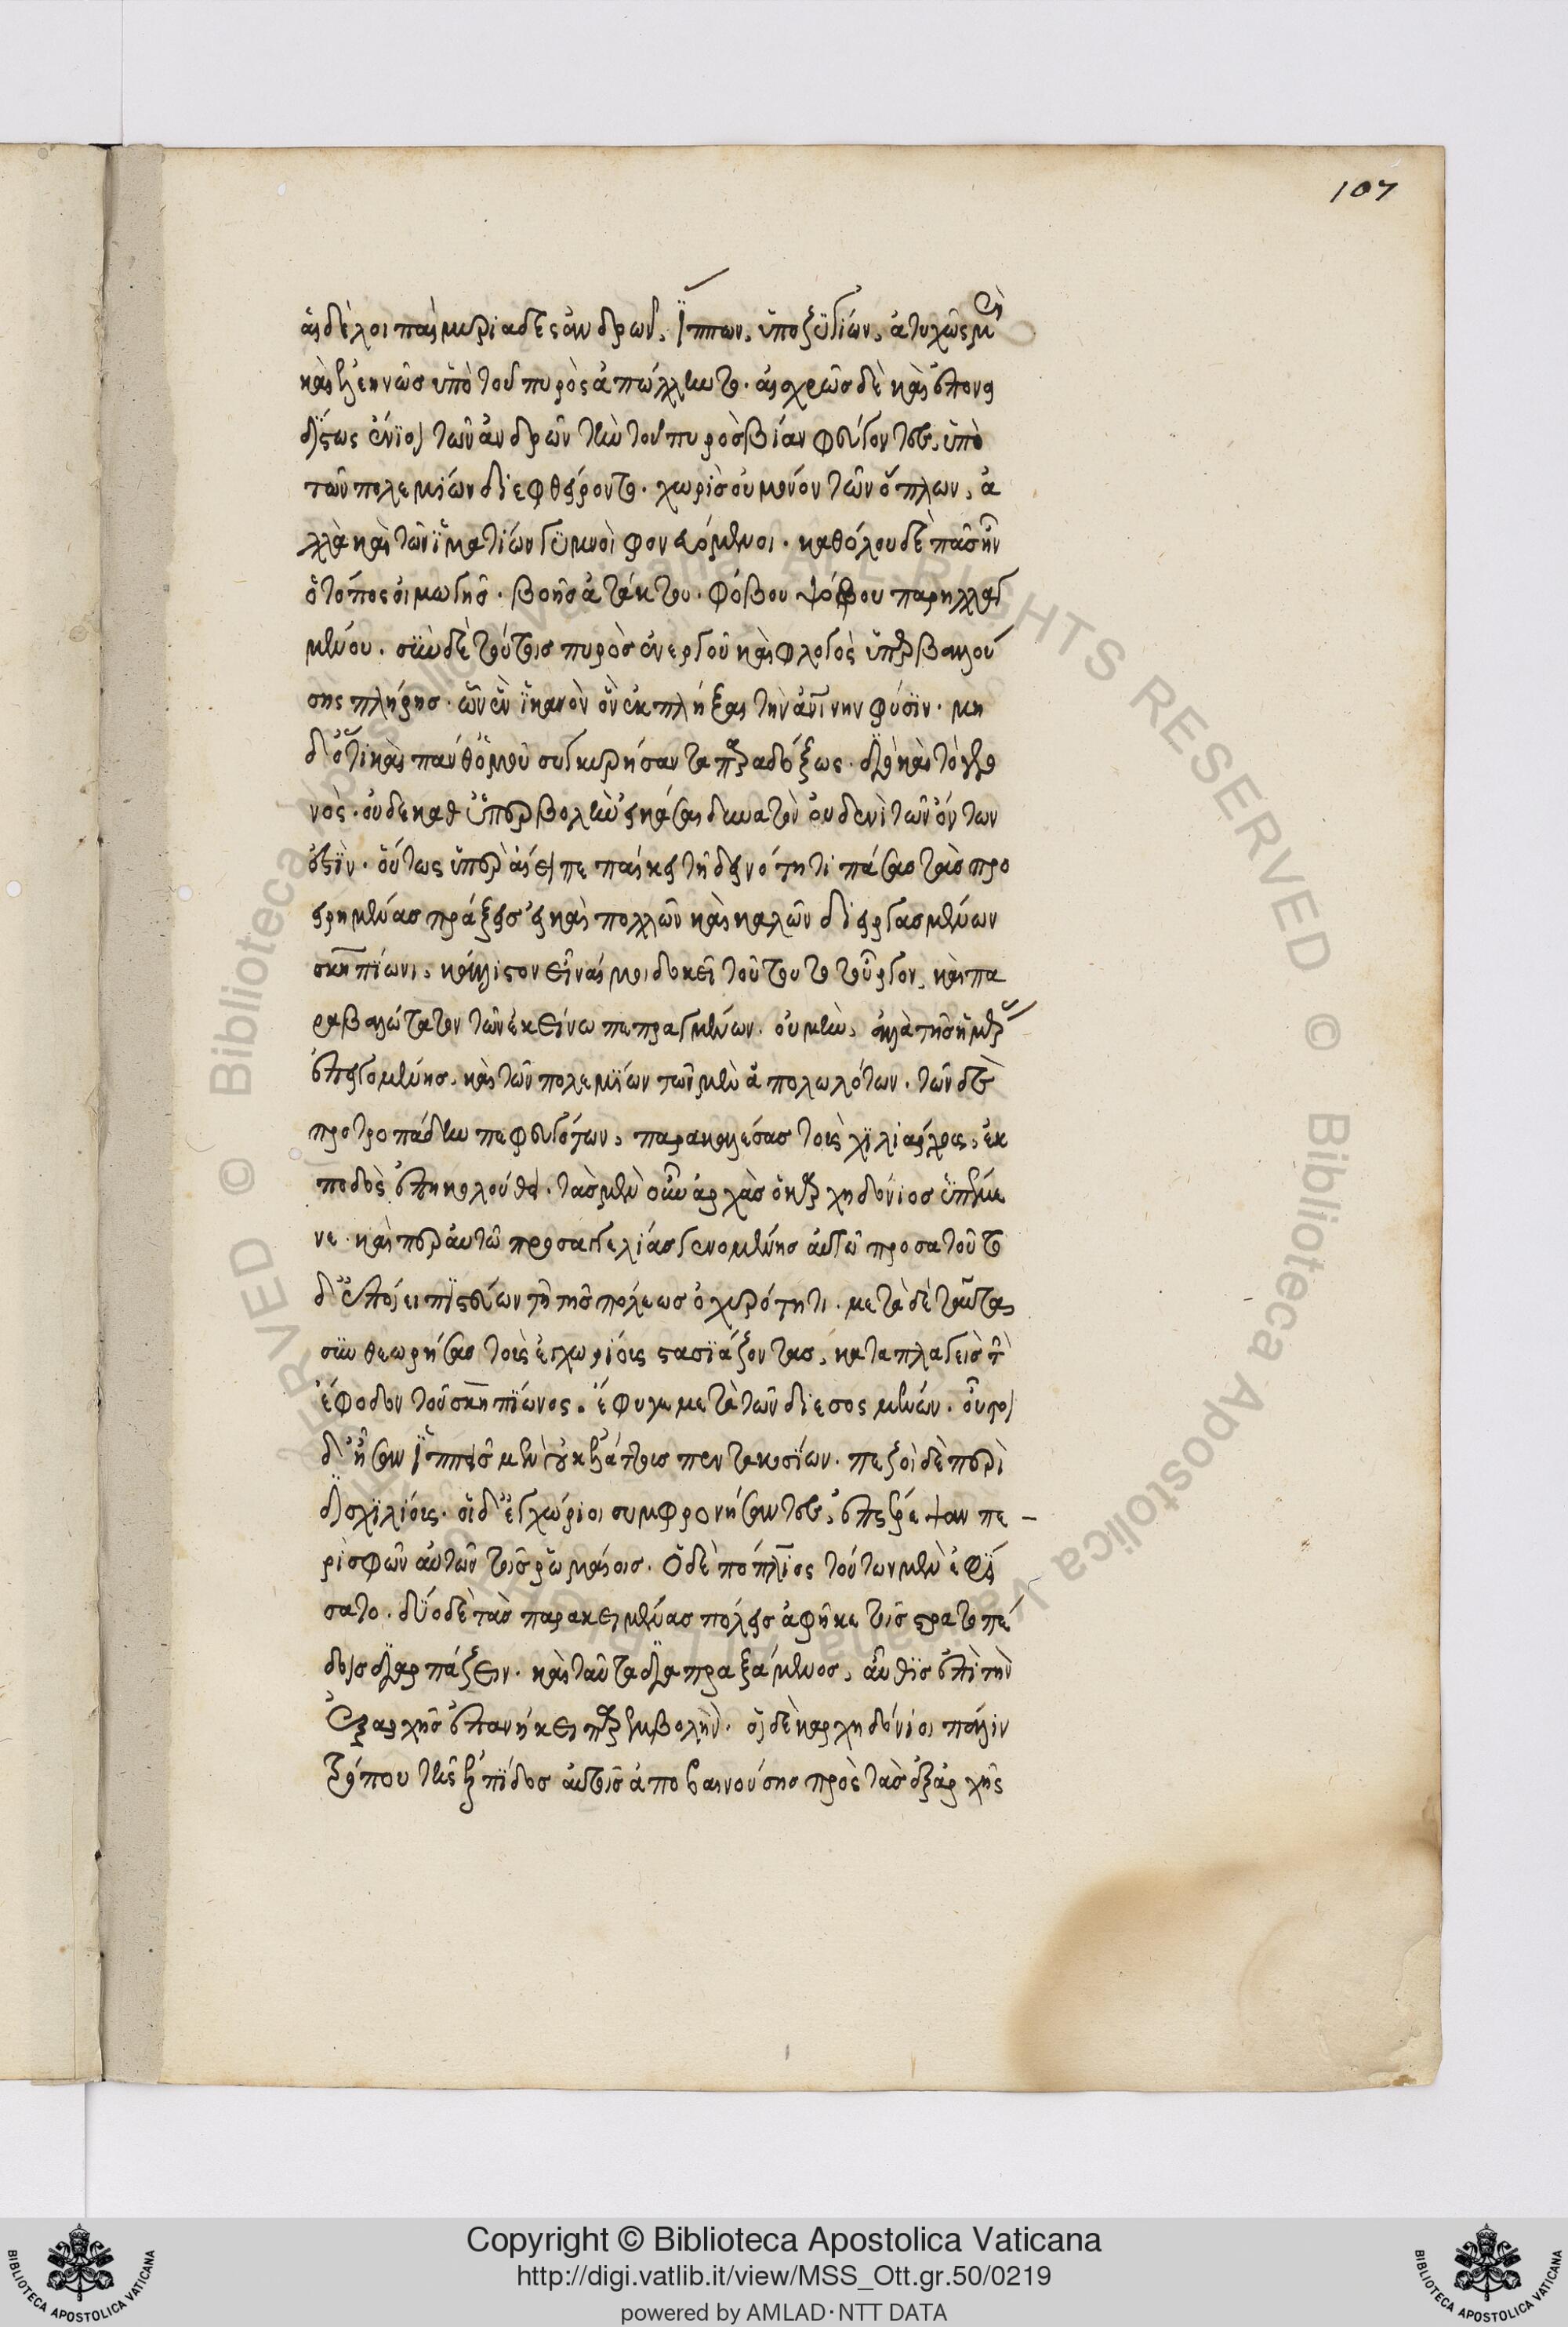 αἱ δὲ λοιπαὶ μυριάδες ἀνδρῶν, ἵππων, ὑποζυγίων, ἀτυχῶς μὲν
καὶ ἐλεεινῶς ὑπὸ τοῦ πυρὸς ἀπώλλυντο. αἰσχρῶς δὲ καὶ ἐπονει
δίστως ἔνιοι τῶν ἀνδρῶν τὴν τοῦ πυρὸς βίαν φεύγοντες, ὑπὸ
τῶν πολεμίων διεφθείροντο. χωρὶς οὐ μόνον τῶν ὅπλων, ἀ
λλὰ καὶ τῶν ἱματίων γυμνοὶ φονευόμενοι. καθόλου δὲ πᾶς ἦν
ὁ τόπος οἰμωγῆς. βοῆς ἀτάκτου. φόβου ψόφου παρηλλαγ
μένου. σὺν δὲ τούτοις πυρὸς ἐνεργοῦ καὶ φλογὸς ὑπερβαλλού
σης πλήρης. ὧν ἓν ἱκανὸν ὂν ἐκπλήξαι τὴν ἀνίνην φύσιν. μη
δ' ὅτι καὶ πάνθ' ὁμοῦ συγκυρήσαντα παραδόξως. διὸ καὶ τὸ γεγο
νὸς. οὐδὲ καθ' ὑπερβολὴν εἰκάσαι δυνατὸν οὐδενὶ τῶν ὄντων
ἐστίν. οὕτως ὑπὲρ πεπαίκει τῇ δεινότητι πάσας τὰς προ
ειρημένας πράξεις. ᾗ καὶ πολλῶν καὶ καλῶν διειργασμένων
σκηπίωνι, κάλλιστον εἶναί μοι δοκεῖ τοῦτο τοὖργον, καὶ πα
ραβολώτατον τῶν ἐκείνω πεπραγμένων. οὐ μὴν, ἀλλὰ τῆς ἡμέρ
ἐπιγενομένης, καὶ τῶν πολεμίων τῶν μὲν ἀπολωλότων. τῶν δὲ
προτροπάδην πεφευγότων, παρακαλέσας τοὺς χιλιάρχους, ἐκ
ποδὸς ἐπηκολούθει. τὰς μὲν οὖν ἀρχὰς ὁ καρχηδόνιος ὑπέμε
νε. καίπερ αὐτῶ προσαγγελίας γενομένης αὐτῶ προσ τοῦτο
δ' ἐποίει πιστεύων τῇ τῆς πόλεως ὀχυρότητι. μετὰ δὲ ταῦτα
συνθεωρήσας τοὺς ἐγχωρίους στασιάζοντας, καταπλαγεὶς τὴν
ἔφοδον τοῦ σκηπίωνος. ἔφυγε μετὰ τῶν διεσωσμένων. οὗτοι
δ' ἦσαν ἱππεῖς μὲν οὐκ ἐλάττους πεντακοσίων. πεζοὶ δὲ περὶ
δισχιλίους. οἱ δ' ἐγχώριοι συμφρονήσαντες, ἐπέτρεψαν πε
ρὶ σφῶν αὐτῶν τοῖς ῥωμαίοις. ὁ δὲ πόπλιος τούτων μὲν ἐφεί
σατο. δύο δὲ τὰς παρακειμένας πόλεις ἀφῆκε τοῖς στρατοπέ
δοις διαρπάζειν. καὶ ταῦτα διαπραξάμενος, αὖθις ἐπὶ τὴν
ἐξ ἀρχῆς ἐπανήκει παρεμβολὴν. οἱ δὲ καρχηδόνιοι πάλιν
τρόπου τῆς ἐλπίδος αὐτοῖς ἀποβαινούσης πρὸς τὰς ἐξ ἀρχῆς
107
Copyright © Biblioteca Apostolica Vaticana
http://digi.vatlib.it/view/MSS_Ott.gr.50/0219
powered by AMLAD·NTT DATA